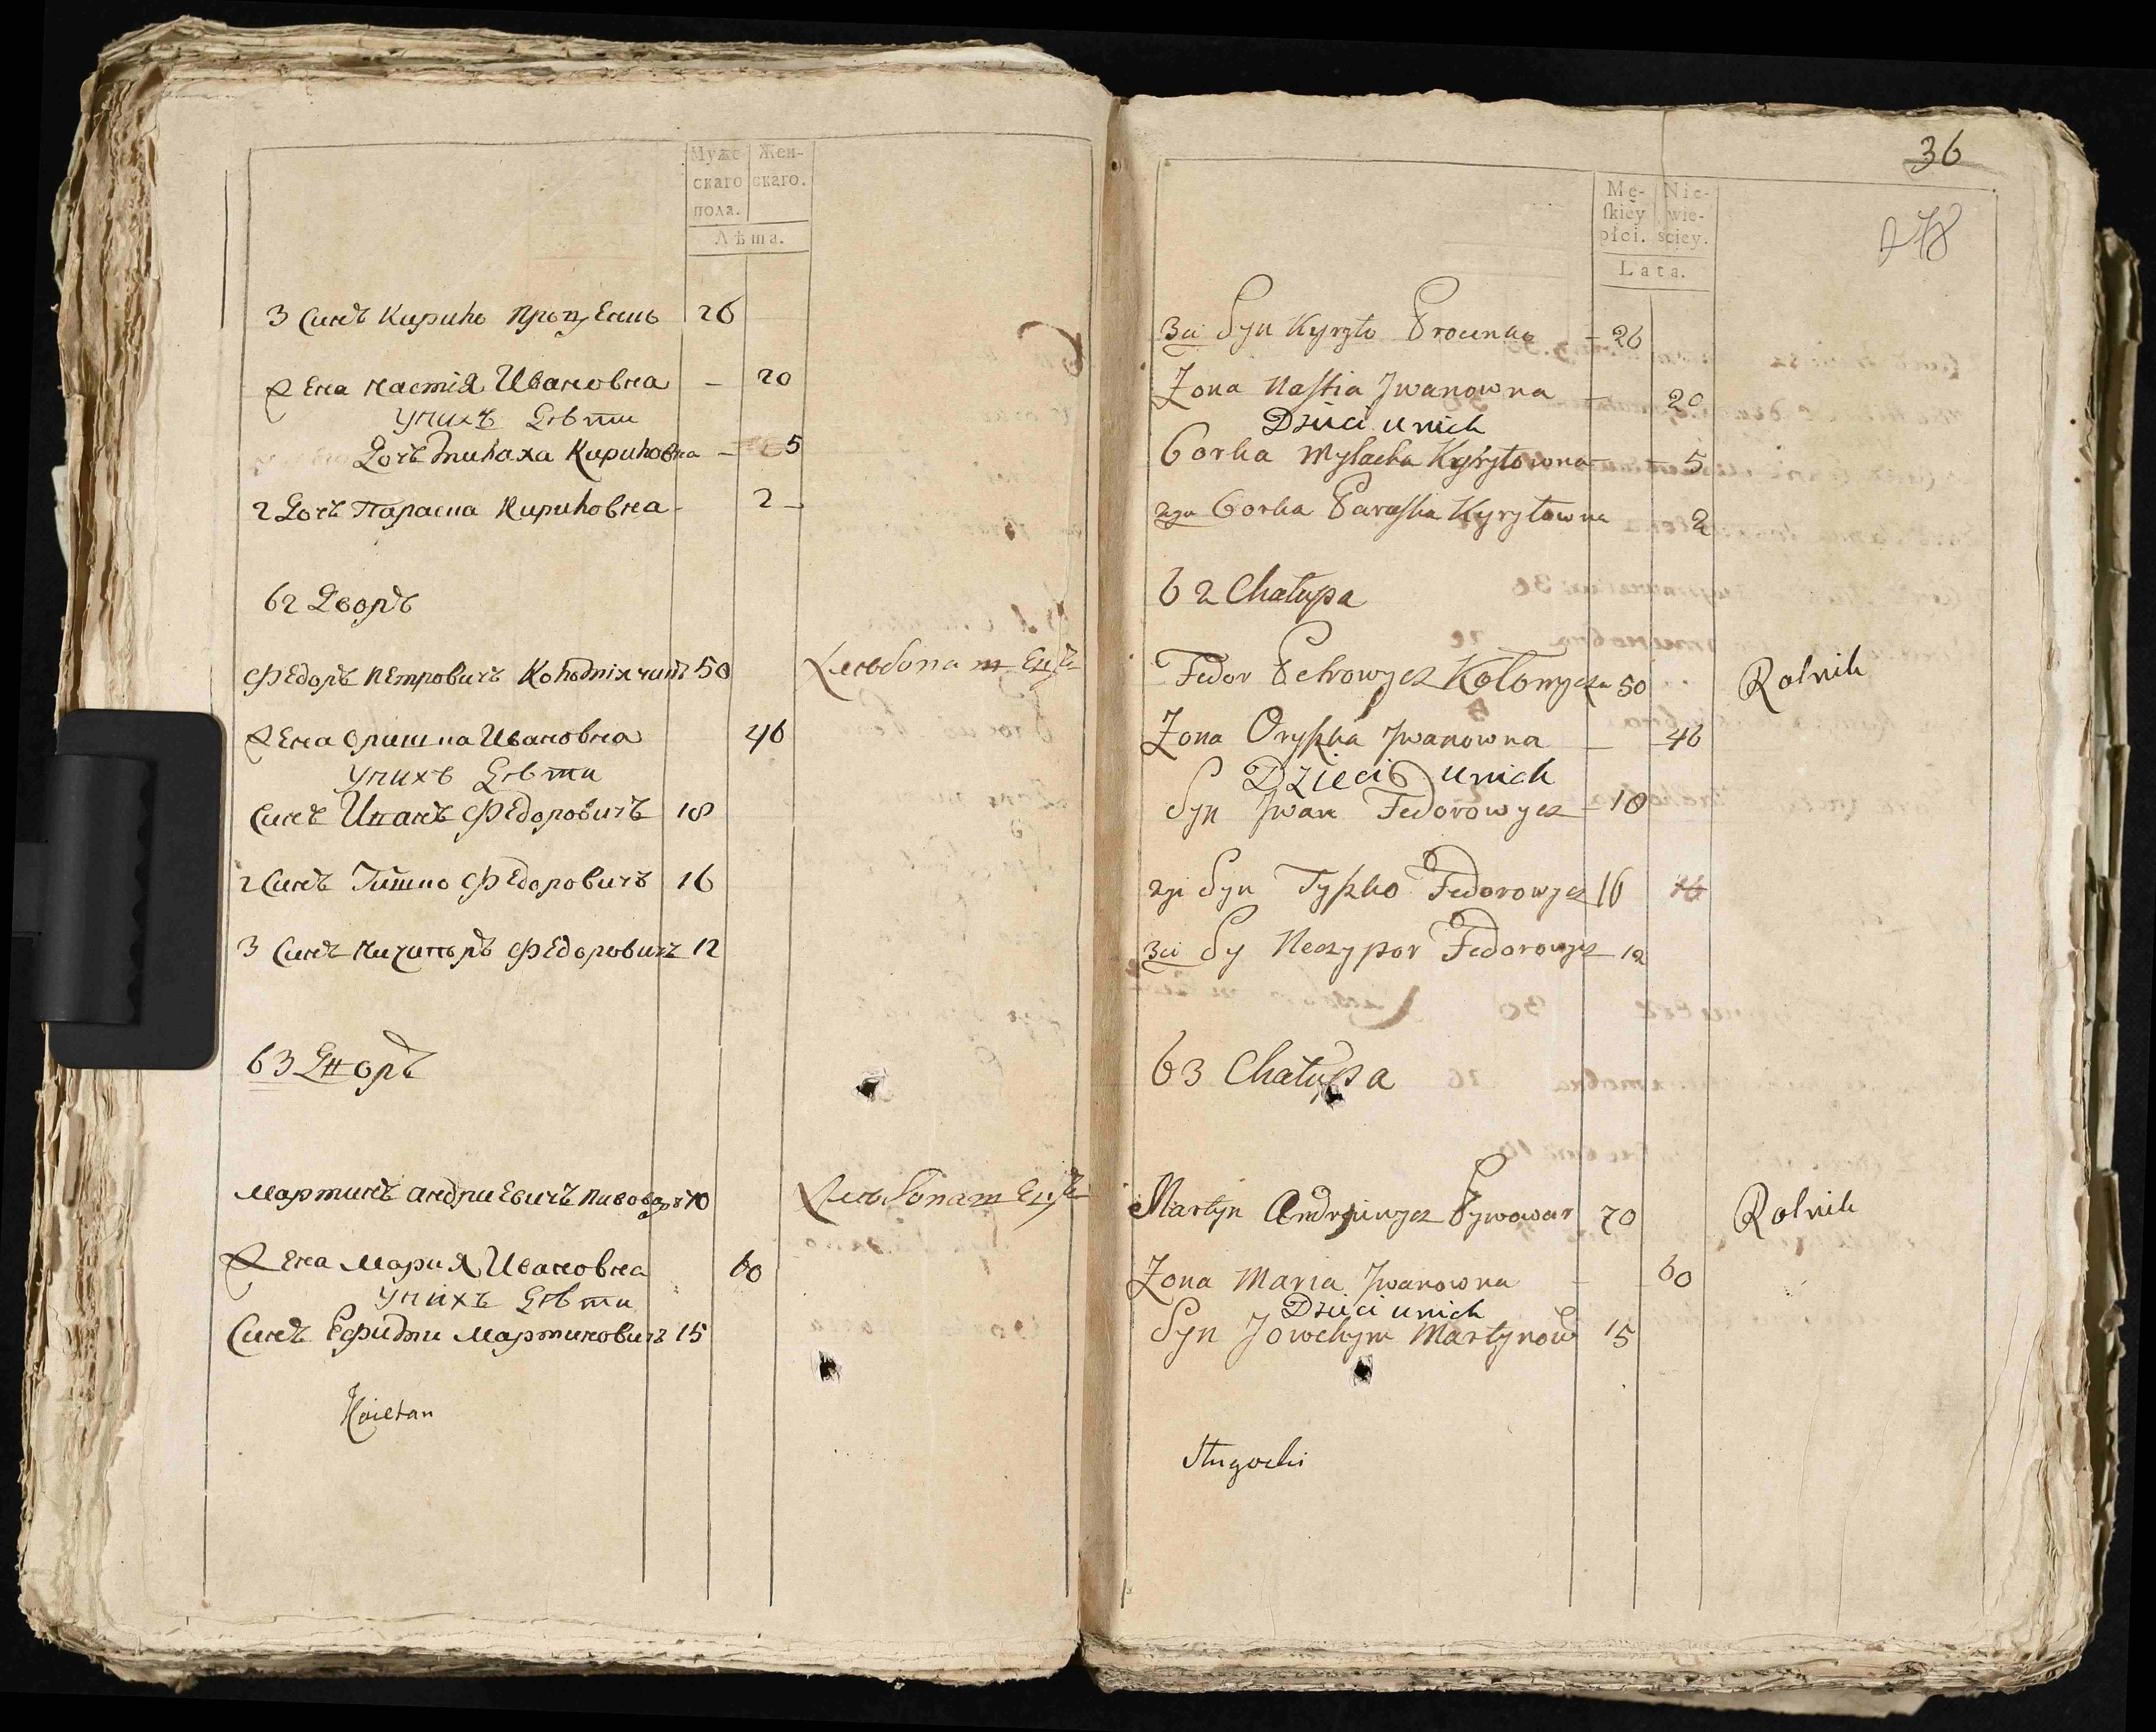 Муже-
скаго
пола.
Жен-
скаго.
Лѣта.
3 Синъ Кирило Проценко 26
Жена Настія Ивановна – 20
У нихъ Дѣти
Дочъ Милаха Кириловна – 5
2 Дочъ Параска Кириловна – 2 –
62 Дворъ
Федоръ Петровичъ Коломійчикъ 50 Хлѣбопашецъ
Жена Оришка Ивановна 46
У нихъ Дѣти
Синъ Иванъ Федоровичъ 18
2 Синъ Тишко Федоровичъ 16
3 Синъ Ничипоръ Федоровичъ 12
63 Дворъ
Мартинъ Андриевичъ Пивоваръ 70 Хлѣбопашецъ
Жена Мария Ивановна 60
У нихъ Дѣти
Синъ Мартиновичъ 15
36
Mę-
skiey
płci.
Nie-
wie-
ściey.
Lata.
3ci Syn Kyryło Procenko – 26
Żona Nastia Jwanowna – 20
Dzieci u nich
Corka Mylacha Kyryłowna – 5
2ga Corka Paraska Kyryłowna 2
62 Chałupa
Fedor Petrowycz Kołomyczn 50 Rolnik
Żona Oryszka Jwanowna – 46
Dzieci u nich
Syn Jwan Fedorowycz – 18
2gi Syn Tyszko Fedorowycz 16 16
3ci Sy Neczypor Fedorowycz – 12
63 Chałupa
Martyn Andrijiwycz Pywowar 70 Rolnik
Żona Maria Jwanowna – 60
Dzieci u nich
Syn Jowchym Martynow 15